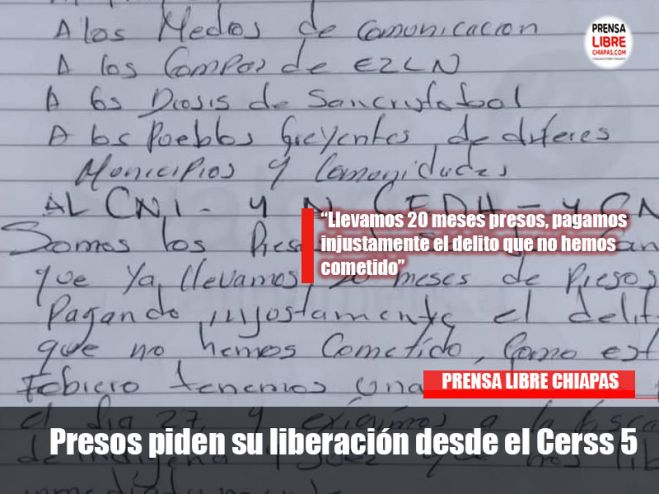 A los Medos de comunicacion
A los Compas de EZLN
A los Diosis de Sancristobal
A los Pueblos Creyentes de diferes
Municipios y Comonidades
AL CNI - y CEDH - y CN
Somos los Presos
que ya llevamos 20 meses de Piesos
Pagando injostamente el delit
que no hemos Cometido, Como est
Febiero tenemos una
el dia 27 y exigimos a la fisca
PRENSA
LIBRE
CHIAPAS.COM
“Llevamos 20 meses presos, pagamos
injustamente el delito que no hemos
cometido”
PRENSA LIBRE CHIAPAS
Presos piden su liberación desde el Cerss 5